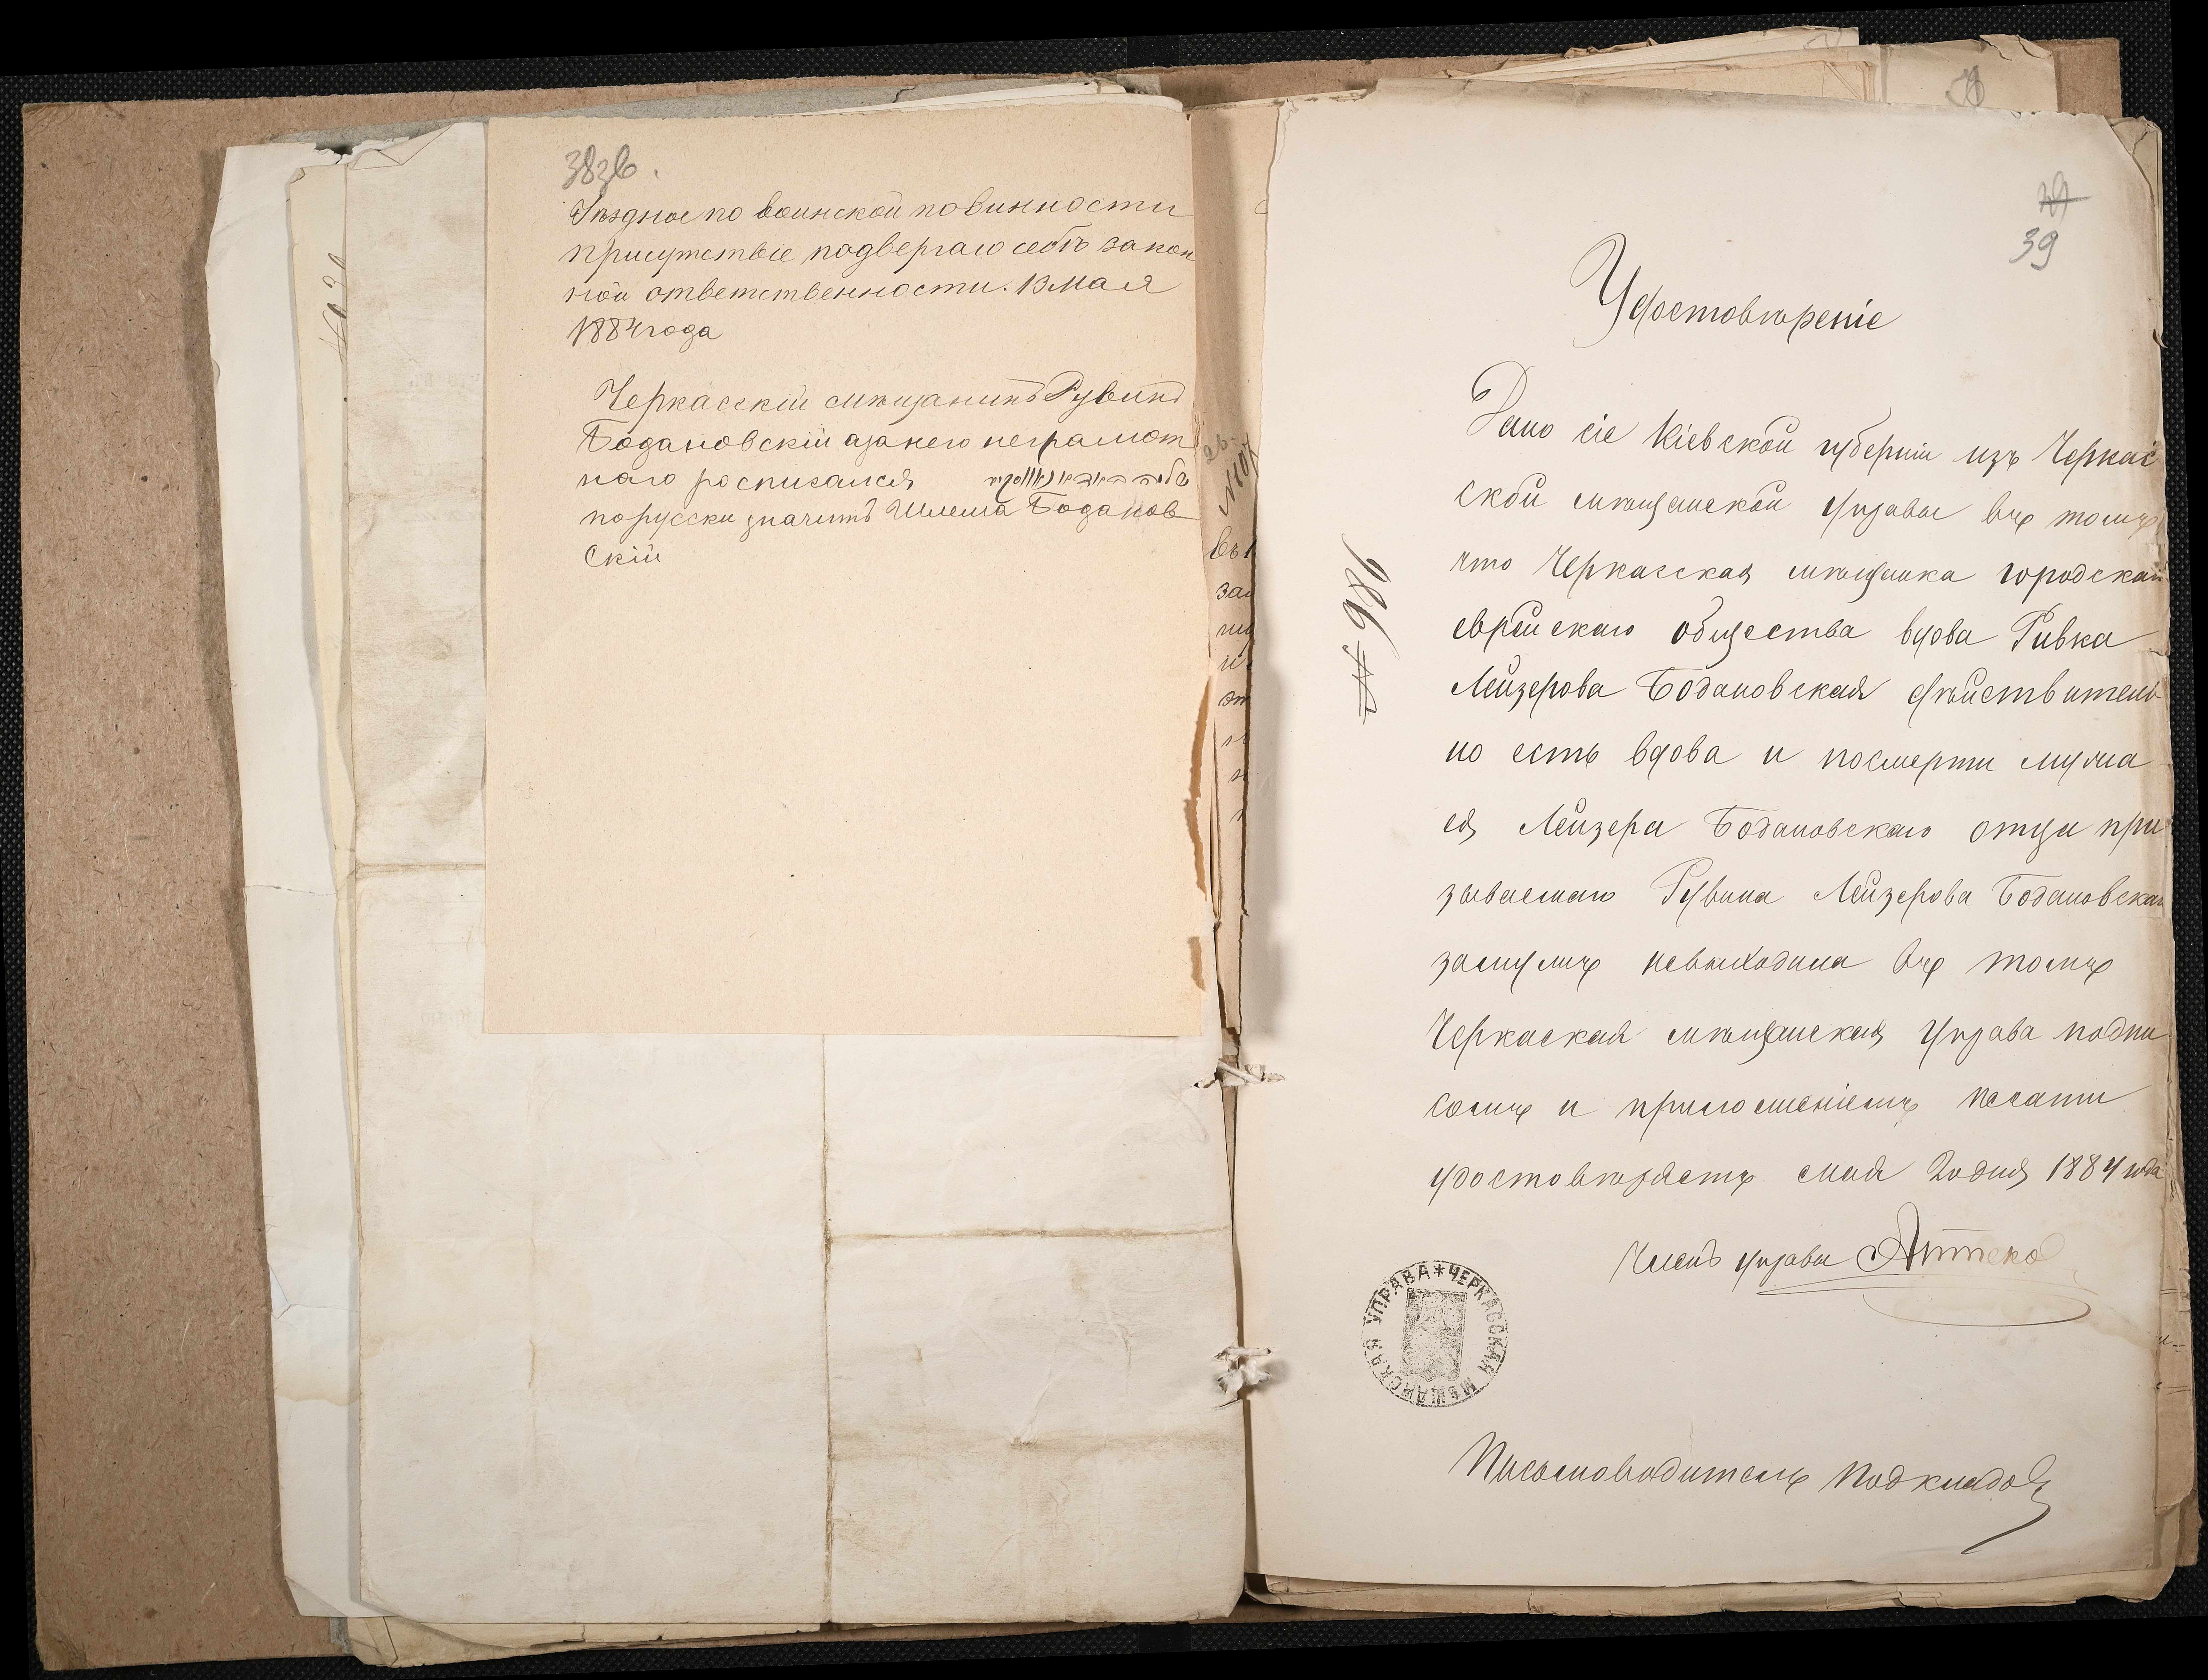 38зв.
Уѣздное по воинской повинности
присутствіе подвергаю себѣ закон
ной ответственности. 13 мая
1884 года
Черкасскій мѣщанинъ Рувинъ
Бодановскій азанего неграмот
наго росписался
порусски значитъ Шлема Боданов
скій
39
Удостовѣреніе
Дано сіе Кіевской губерніи изъ Черкас
ской мѣщанской управы въ томъ
что Черкасская мѣщанка городскаго
еврейскаго общества вдова Ривка
Лейзерова Бодановская дѣйствитель
но есть вдова и посмерти мужа
ея Лейзера Бодановскаго отца при
зываемаго Рувина Лейзерова Бодановскаго
замужъ невыходила въ томъ
Черкаская мѣщанская управа подпи
сомъ и приложеніемъ печати
удостовѣряетъ мая 20 дня 1884 года
Членъ управы
ЧЕРКАССКАЯ МѢЩАНСКАЯ УПРАВА *
Письмоводитель Подкладов
№ 986